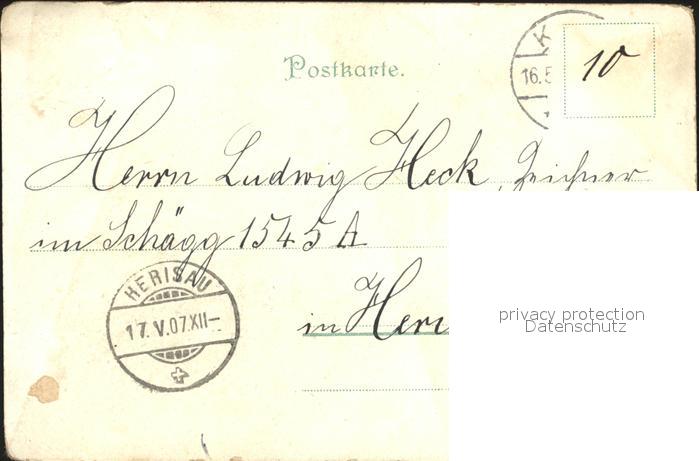 Postkarte.
K
16.5
10
Herrn Ludwig Heck, Zeichner
im Schägg 1545 A
HERISAU
17.V.07.XII-
in Heri
privacy protection
Datenschutz